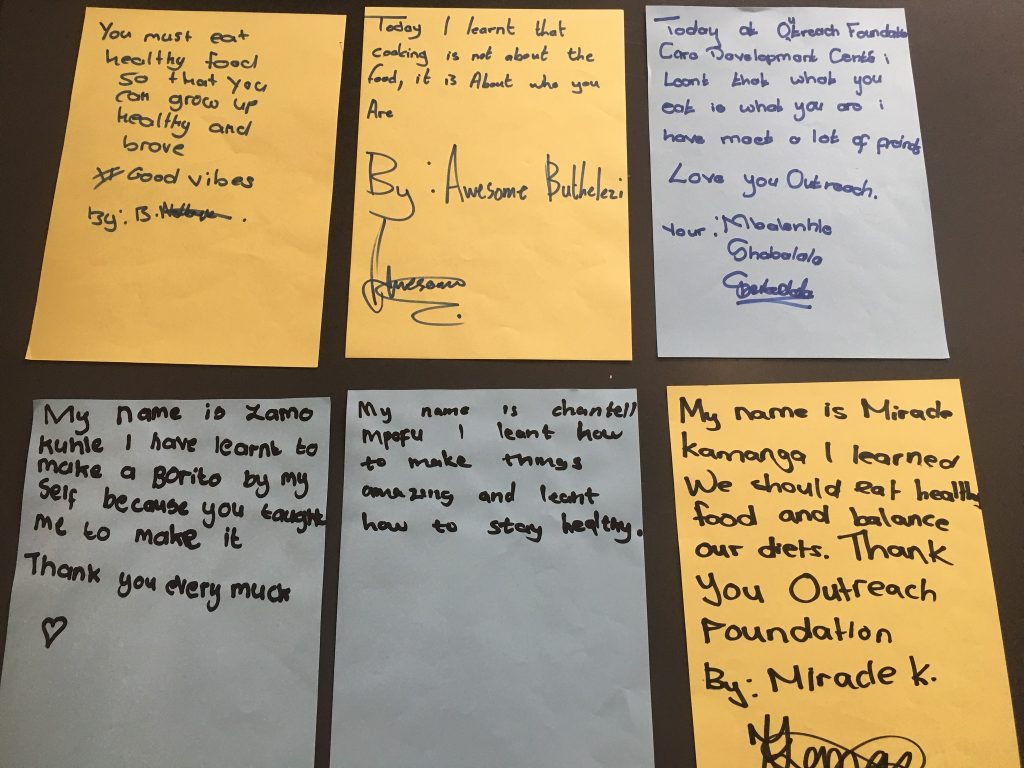 You must eat
healthy food
so that you
can grow up
healthy and
brave
# Good vibes
By: B.
Today I learnt that
cooking is not about the
food, it is About who you
Are
By: Awesome Buthelezi
Awesome
Today at Outreach Foundatio
Caro Development Centre i
Leant that what you
eat is what you are i
have meet a lot of
Love you Outreach.
Your: Mbalenhle
Shabalala
My name is Zamo
kuhle I have learnt to
make a Borito by my
Self because you taught
me to make it
Thank you every much
My name is chantell
Mpofu I leant how
to make things
amazing and leant
how to stay healthy.
My name is Mirade
kamanga I learned
We should eat healthy
food and balance
our diets. Thank
you Outreach
Foundation
By: Mirade k.